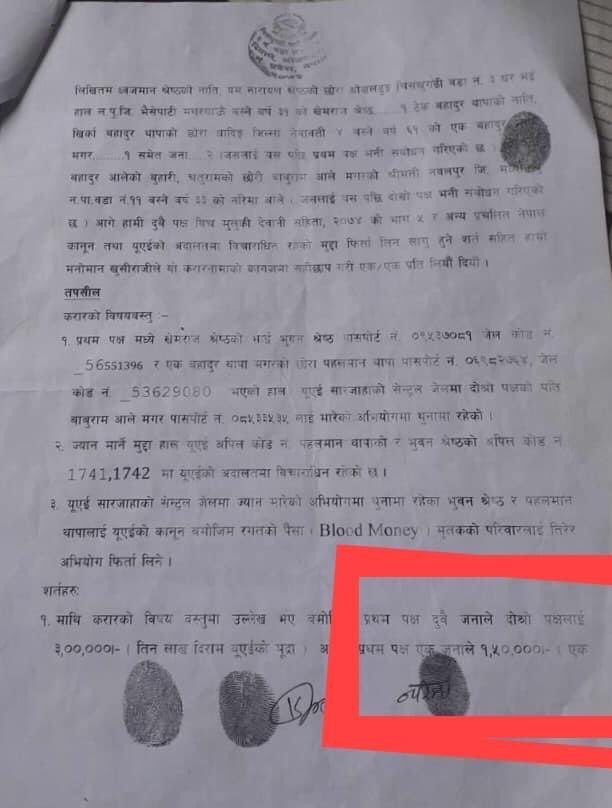 लिखितम ध्वजमान श्रेष्ठको नाति, प्रेम नारायण श्रेष्ठको छोरा ओखलढुङ्गा चिसङ्खुगढी वडा नं. ३ घर भई
हाल ल.पु.जि. भैसेपाटी मगरगाऊँ बस्ने वर्ष ३१ को खेमराज श्रेष्ठ......१ टेक बहादुर थापाको नाति,
खिर्का बहादुर थापाको छोरा धादिङ जिल्ला नेत्रावती ४ बस्ने वर्ष ६१ को एक बहादुर
मगर.........१ समेत जना....२ (जसलाई यस पछि प्रथम पक्ष भनी संबोधन गरिएको छ)
बहादुर आलेको बुहारी, छतुरामको छोरी बाबुराम आले मगरको श्रीमती नवलपुर जि.
न.पा.वडा नं.११ बस्ने वर्ष ३३ को नरिमा आले (जसलाई यस पछि दोस्रो पक्ष भनी संबोधन गरिएको
छ) आगे हामी दुवै पक्ष बिच मुलुकी देवानी संहिता, २०७४ को भाग ५ र अन्य प्रचलित नेपाल
कानून तथा यूएईको अदालतमा विचाराधिन रहेको मुद्दा फिर्ता लिन लागु हुने शर्त सहित हाम्रो
मनोमान खुसीराजीले यो करारनामाको कागजमा सहीछाप गरी एक/एक प्रति लियौं दियौं ।
तपसील
करारको विषयवस्तु :–
१. प्रथम पक्ष मध्ये खेमराज श्रेष्ठको भाई भुवन श्रेष्ठ पासपोर्ट नं. ०९५३७०८१ जेल कोड नं.
_56551396 र एक बहादुर थापा मगरको छोरा पहलमान थापा पासपोर्ट नं. ०६९८२७६४, जेल
कोड नं. _53629080 भएको हाल यूएई सारजाहाको सेन्ट्रल जेलमा दोश्रो पक्षको पति
बाबुराम आले मगर पासपोर्ट नं. ०८५३३५३५ लाई मारेको अभियोगमा थुनामा रहेको ।
२. ज्यान मार्ने मुद्दा हाल यूएई अपिल कोड नं. पहलमान थापाको र भुवन श्रेष्ठको अपिल कोड नं
1741,1742 मा यूएईको अदालतमा विचाराधिन रहेको छ ।
३. यूएई सारजाहाको सेन्ट्रल जेलमा ज्यान मारेको अभियोगमा थुनामा रहेका भुवन श्रेष्ठ र पहलमान
थापालाई यूएईको कानून बमोजिम रगतको पैसा ( Blood Money ) मृतकको परिवारलाई तिरेर
अभियोग फिर्ता लिने ।
शर्तहरु:
१. माथि करारको विषय वस्तुमा उल्लेख भए प्रथम पक्ष दुवै जनाले दोश्रो पक्षलाई
३,००,०००।- ( तिन लाख दिराम यूएईको मूद्रा ) प्रथम पक्ष एक जनाले १,५०,०००।- (एक